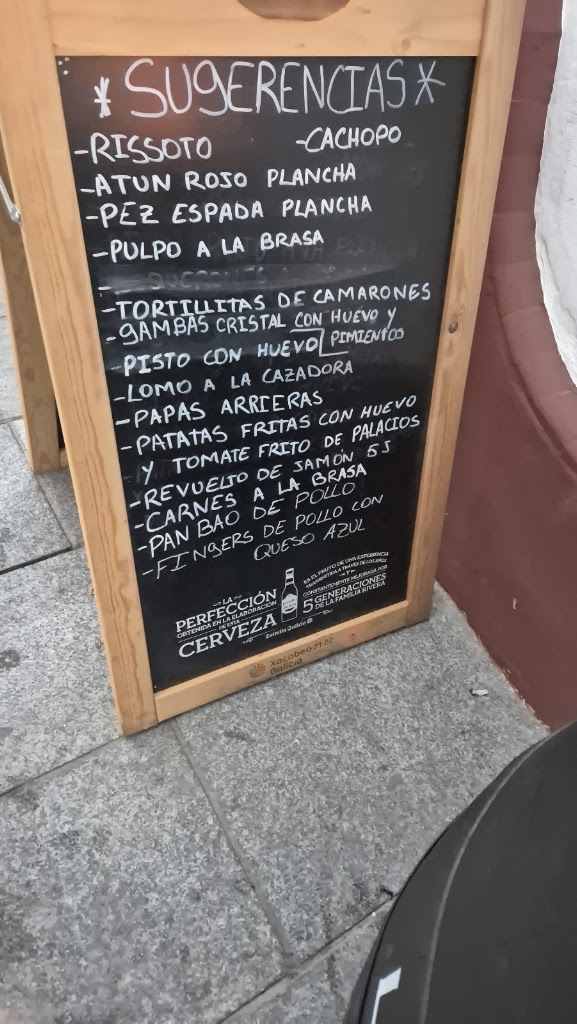 * SUGERENCIAS *
-RISSOTO -CACHOPO
-ATUN ROJO PLANCHA
-PEZ ESPADA PLANCHA
-PULPO A LA BRASA
-
-TORTILLITAS DE CAMARONES
-GAMBAS CRISTAL CON HUEVO Y
PIMIENTOS
-PISTO CON HUEVO
-LOMO A LA CAZADORA
-PAPAS ARRIERAS
-PATATAS FRITAS CON HUEVO
Y TOMATE FRITO DE PALACIOS
-REVUELTO DE JAMÓN 5J
-CARNES A LA BRASA
-PAN BAO DE POLLO
-FINGERS DE POLLO CON
QUESO AZUL
LA
PERFECCIÓN
OBTENIDA EN LA ELABORACIÓN
DE ESTA
CERVEZA
ES EL FRUTO DE UNA EXPERIENCIA
TRANSMITIDA A TRAVÉS DE LOS AÑOS
Y
CONSTANTEMENTE MEJORADA POR
5 GENERACIONES
DE LA FAMILIA RIVERA
Estrella Galicia
Xacobeo 21·22
Galicia